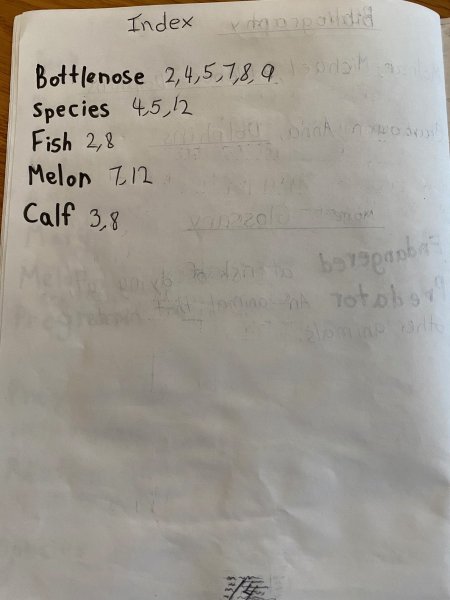 Index
Bottlenose 2,4,5,7,8,9
species 4,5,12
Fish 2,8
Melon 7,12
Calf 3,8